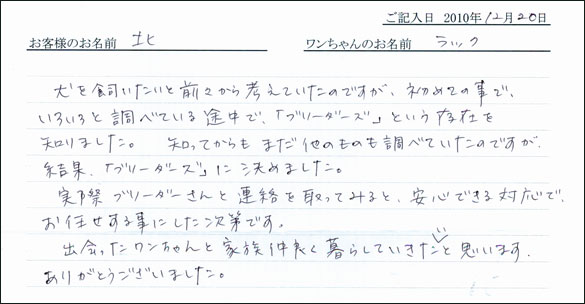 ご記入日 2010年12月20日
お客様のお名前 北 ワンちゃんのお名前 ラック
犬を飼いたいと前々から考えていたのですが、初めての事で、
いろいろと調べている途中で、「ブリーダーズ」という存在を
知りました。 知ってからもまだ他のものも調べていたのですが、
結果、「ブリーダーズ」に決めました。
実際ブリーダーさんと連絡を取ってみると、安心できる対応で、
お任せする事にした次第です。
出会ったワンちゃんと家族仲良く暮らしていきたいと思います。
ありがとうございました。